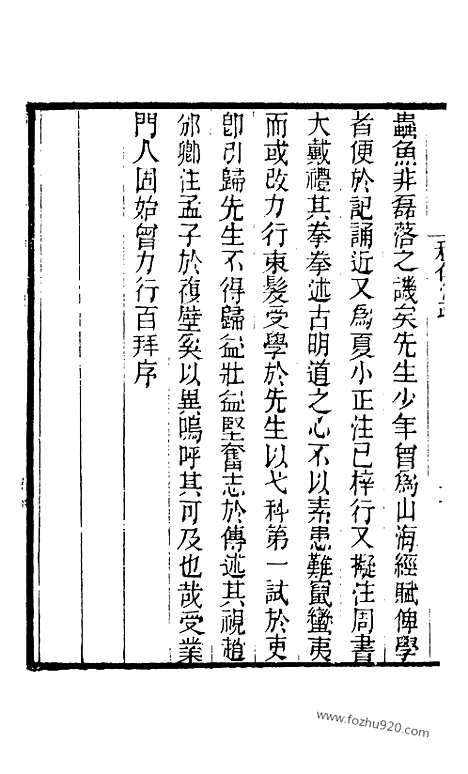 蟲魚非磊落之譏矣先生少年曾爲山海經賦俾學
者便於記誦近又爲夏小正注已梓行又擬注周書
大戴禮其拳拳述古明道之心不以素患難竄蠻夷
而或改力行束髮受學於先生以弋科第一試於吏
卽引歸先生不得歸益壯益堅奮志於傳述其視趙
邠卿注孟子於複壁奚以異嗚呼其可及也哉受業
門人固始曾力行百拜序
www.fozhu920.com